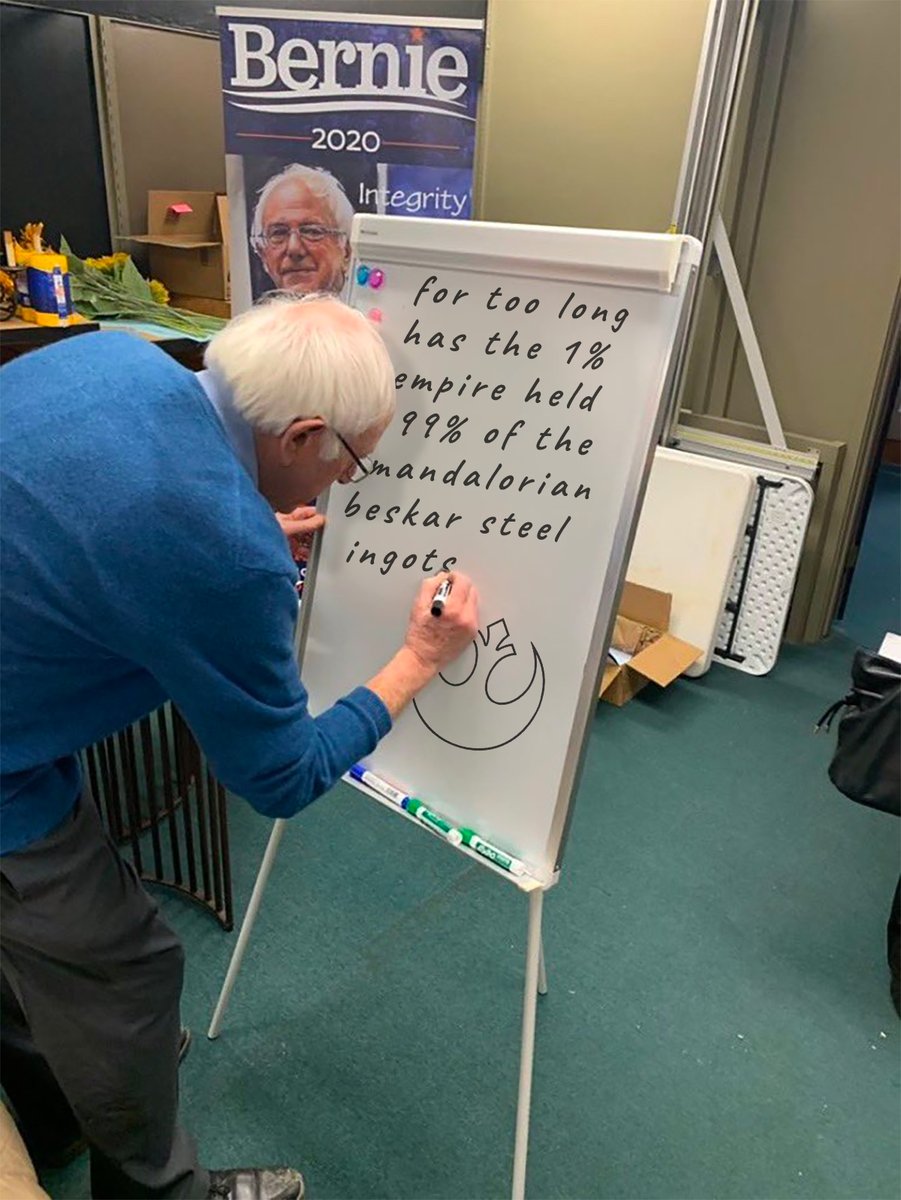 Bernie
2020
Integrity
for too long
has the 1%
empire held
99% of the
mandalorian
beskar steel
ingots